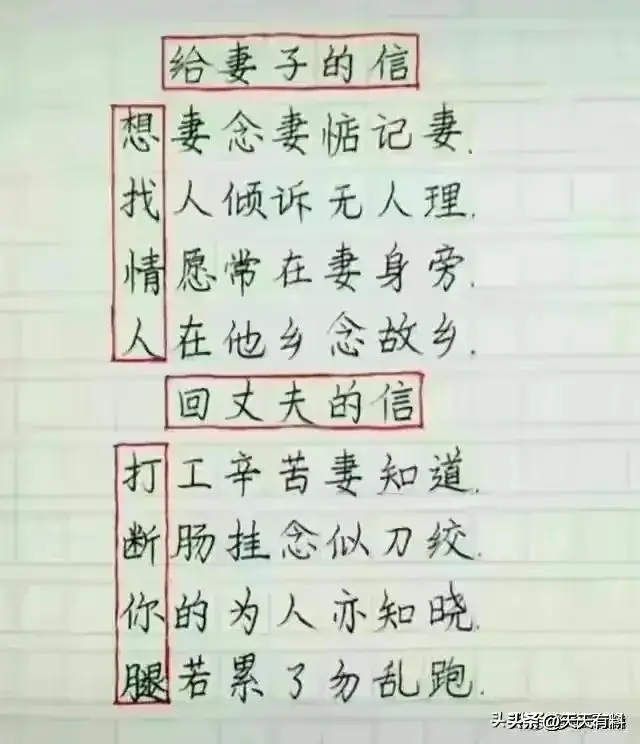 给妻子的信
想妻念妻惦记妻.
找人倾诉无人理.
情愿常在妻身旁.
人在他乡念故乡.
回丈夫的信
打工辛苦妻知道.
断肠挂念似刀绞.
你的为人亦知晓.
腿若累了勿乱跑.
头条@天天有料